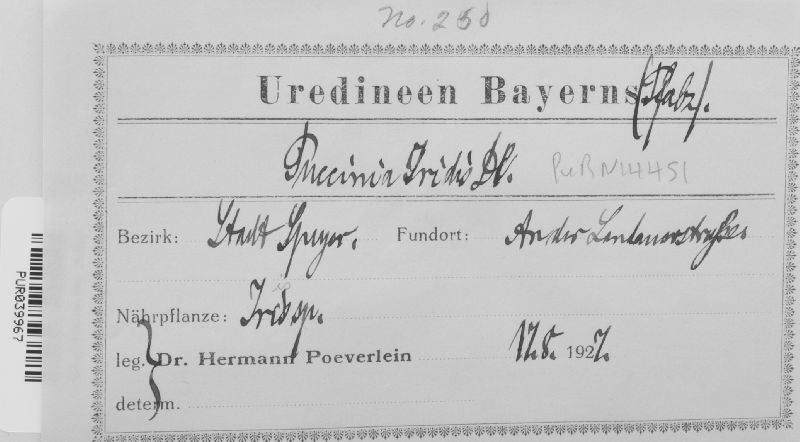 No. 250
Uredineen Bayerns (Pfalz).
Puccinia Iridis DC. PUR N14451
Bezirk: Stadt Speyer. Fundort: An der Landauerstraße
Nährpflanze: Iris sp.
leg. Dr. Hermann Poeverlein 17.8. 1927.
determ.
PUR039967